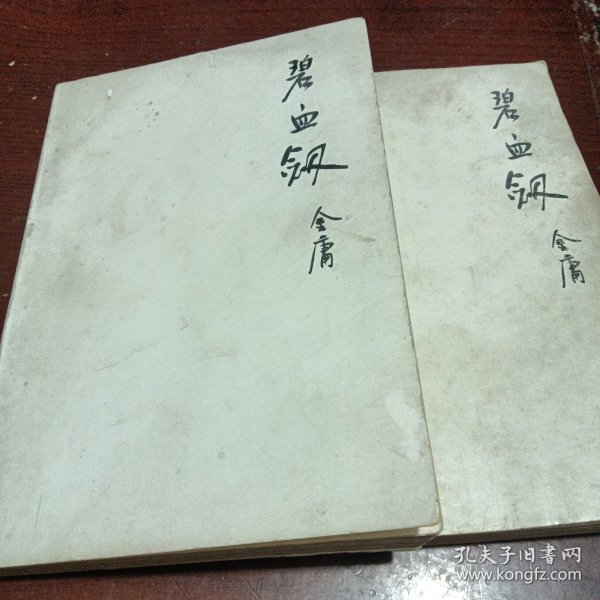 碧血剑
金庸
碧血剑
金庸
孔夫子旧书网
www.kongfz.com